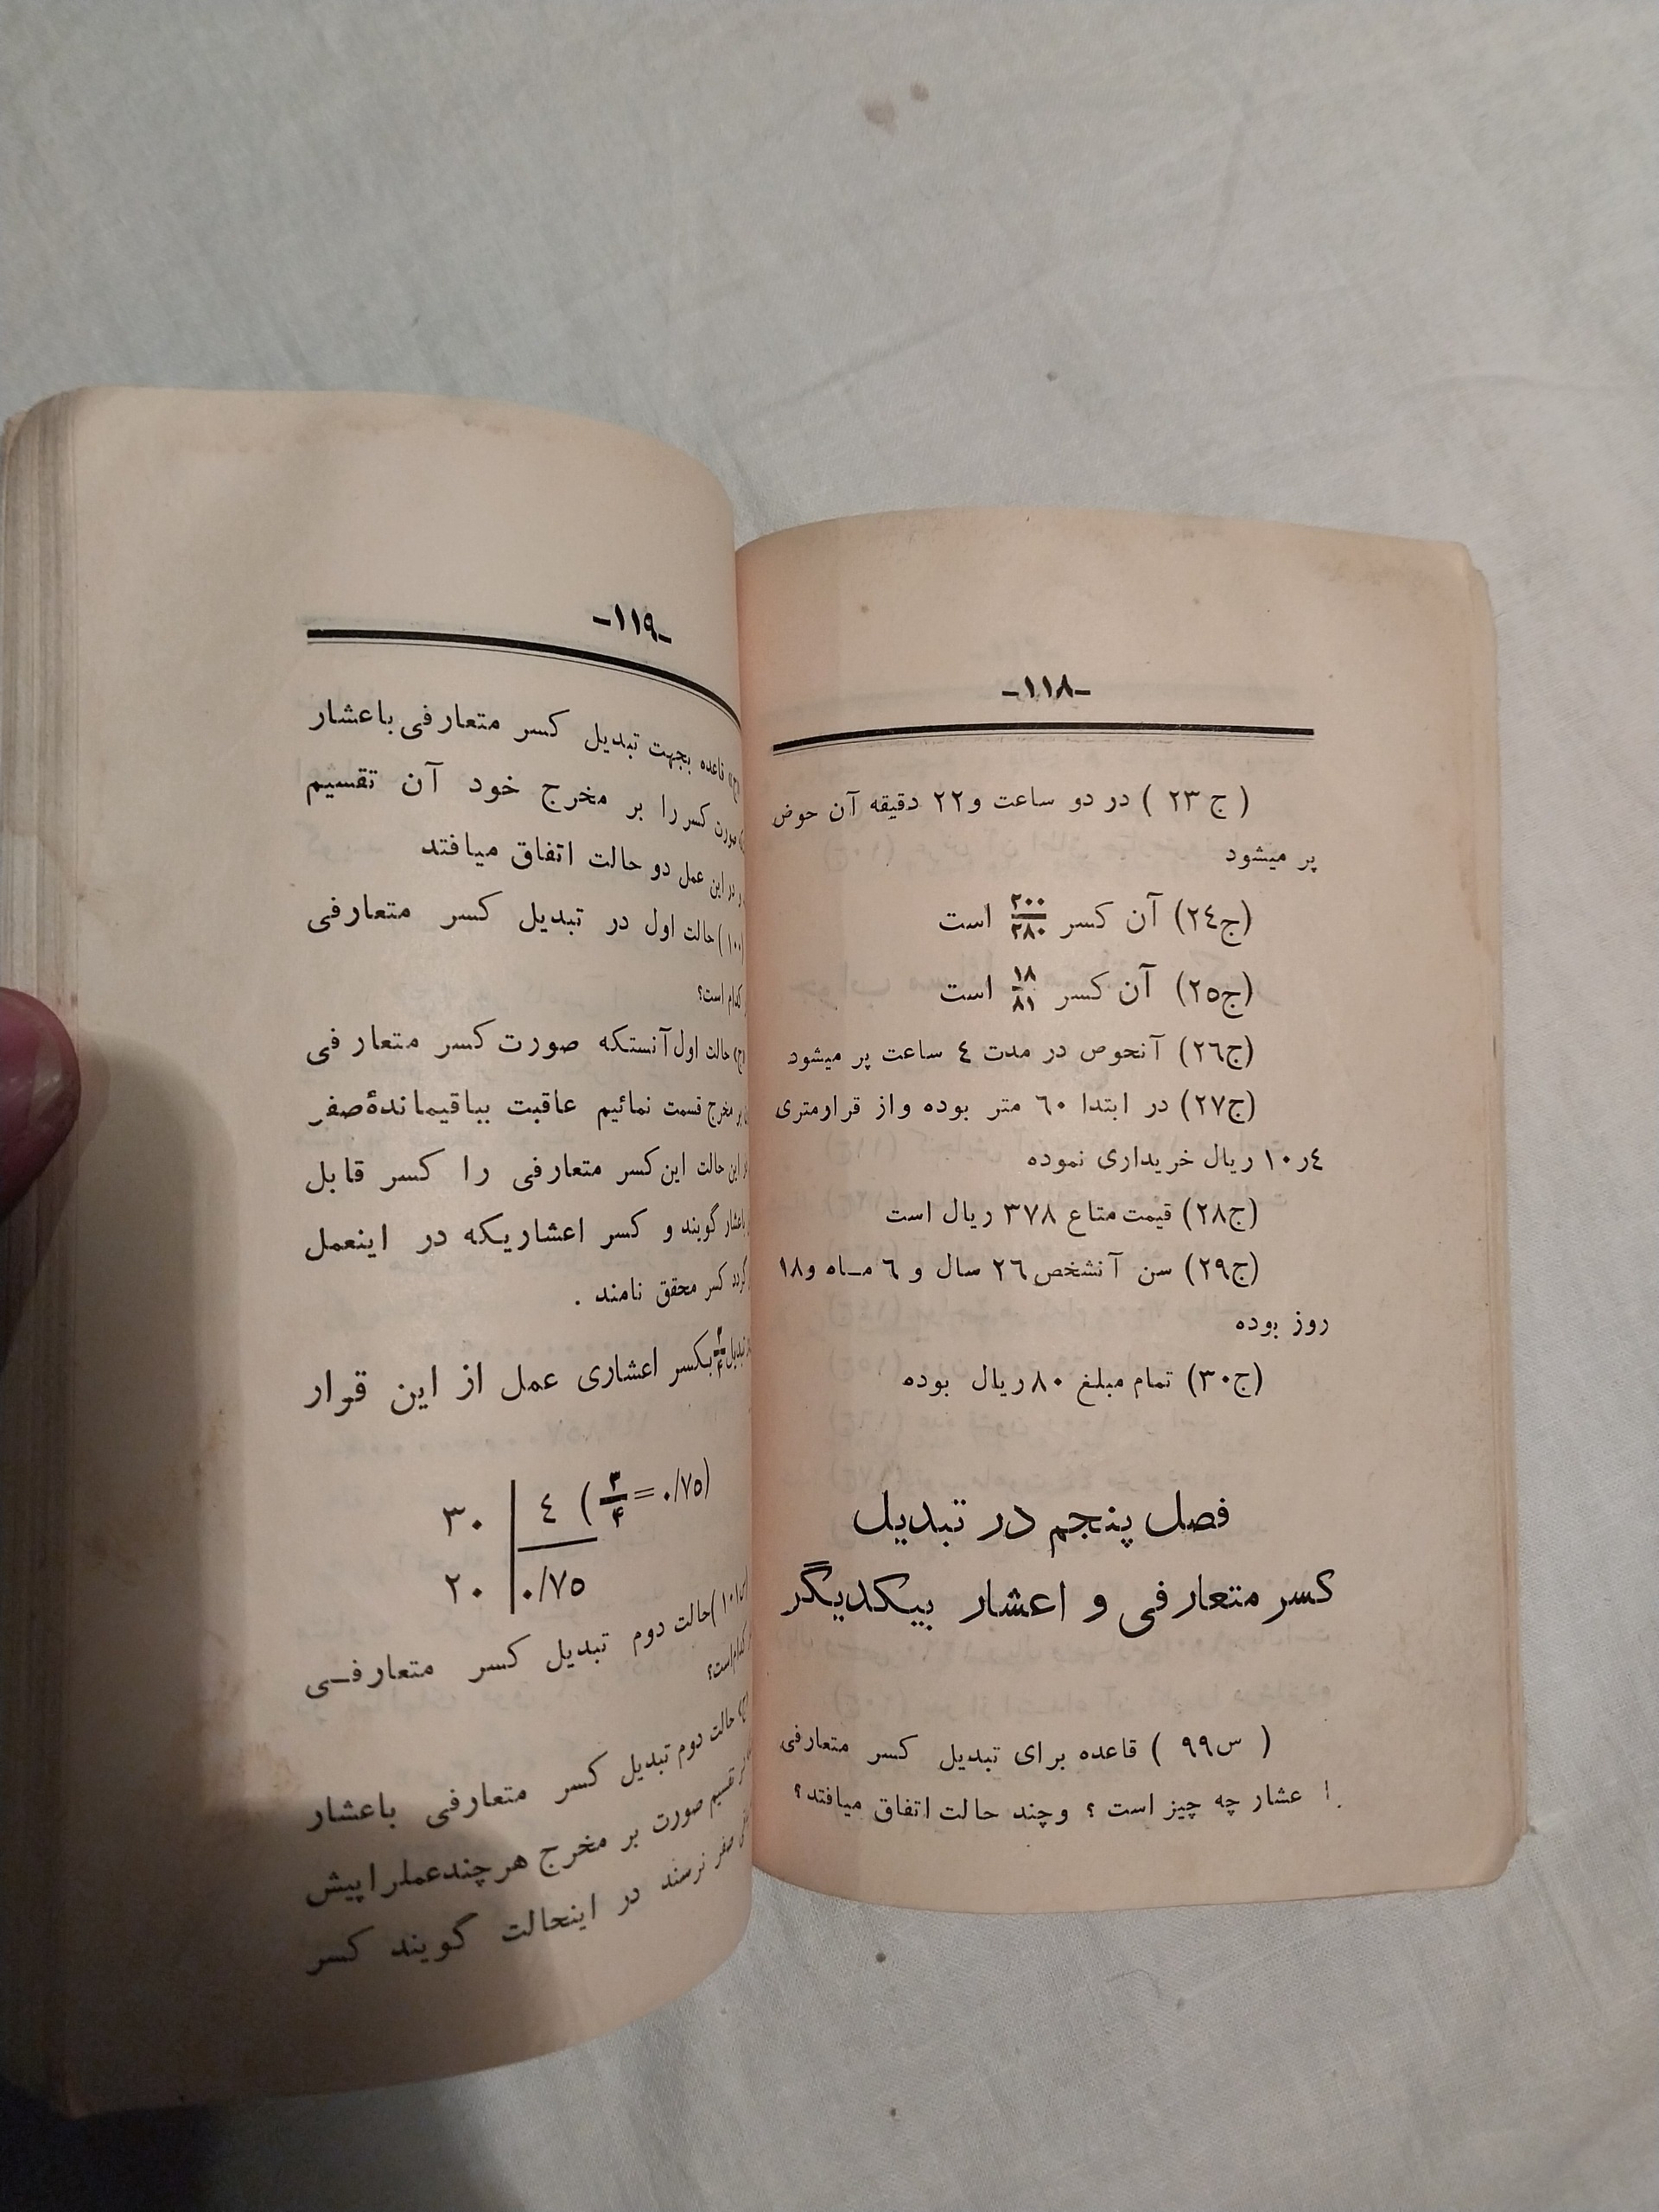 -۱۱۸-
( ج ۲۳ ) در دو ساعت و۲۲ دقیقه آن حوض
پر میشود
(ج۲٤) آن کسر ۲۰۰/۲۸۰ است
(ج۲٥) آن کسر ۱۸/۸۱ است
(ج۲٦) آنحوص در مدت ٤ ساعت پر میشود
(ج۲۷) در ابتدا ٦۰ متر بوده واز قرارمتری
٤ر۱۰ ریال خریداری نموده
(ج۲۸) قیمت متاع ۳۷۸ ریال است
(ج۲۹) سن آنشخص ۲٦ سال و ٦ مـاه و۱۸
روز بوده
(ج۳۰) تمام مبلغ ۸۰ ریال بوده
فصل پنجم در تبدیل
کسر متعارفی و اعشار بیکدیگر
( س۹۹ ) قاعده برای تبدیل کسر متعارفی
ا عشار چه چیز است ؟ وچند حالت اتفاق میافتد؟
-۱۱۹-
قاعده بجهت تبدیل کسر متعارفی باعشار
صورت کسر را بر مخرج خود آن تقسیم
این عمل دو حالت اتفاق میافتد
۱۰۰) حالت اول در تبدیل کسر متعارفی
کدام است؟
حالت اول آنستکه صورت کسر متعارفی
مخرج قسمت نمائیم عاقبت بباقیماندهٔ صفر
این حالت این کسر متعارفی را کسر قابل
باعشار گویند و کسر اعشاریکه در اینعمل
گردد کسر محقق نامند .
تبدیل ۳/۴ بکسر اعشاری عمل از این قرار
۳۰ | ٤ (۳/۴ = ۰/۷٥)
۲۰ | ۰/۷٥
۱۰۱) حالت دوم تبدیل کسر متعارفـی
کدام است؟
حالت دوم تبدیل کسر متعارفی باعشار
تقسیم صورت بر مخرج هرچندعملرا پیش
صفر نرسند در اینحالت گویند کسر